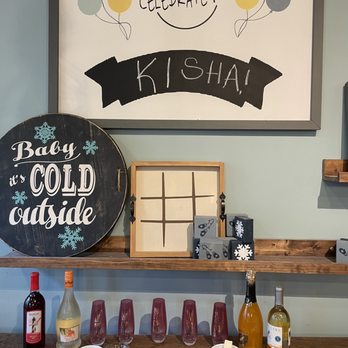 CELEBRATE!
KISHA!
Baby
it's COLD
outside